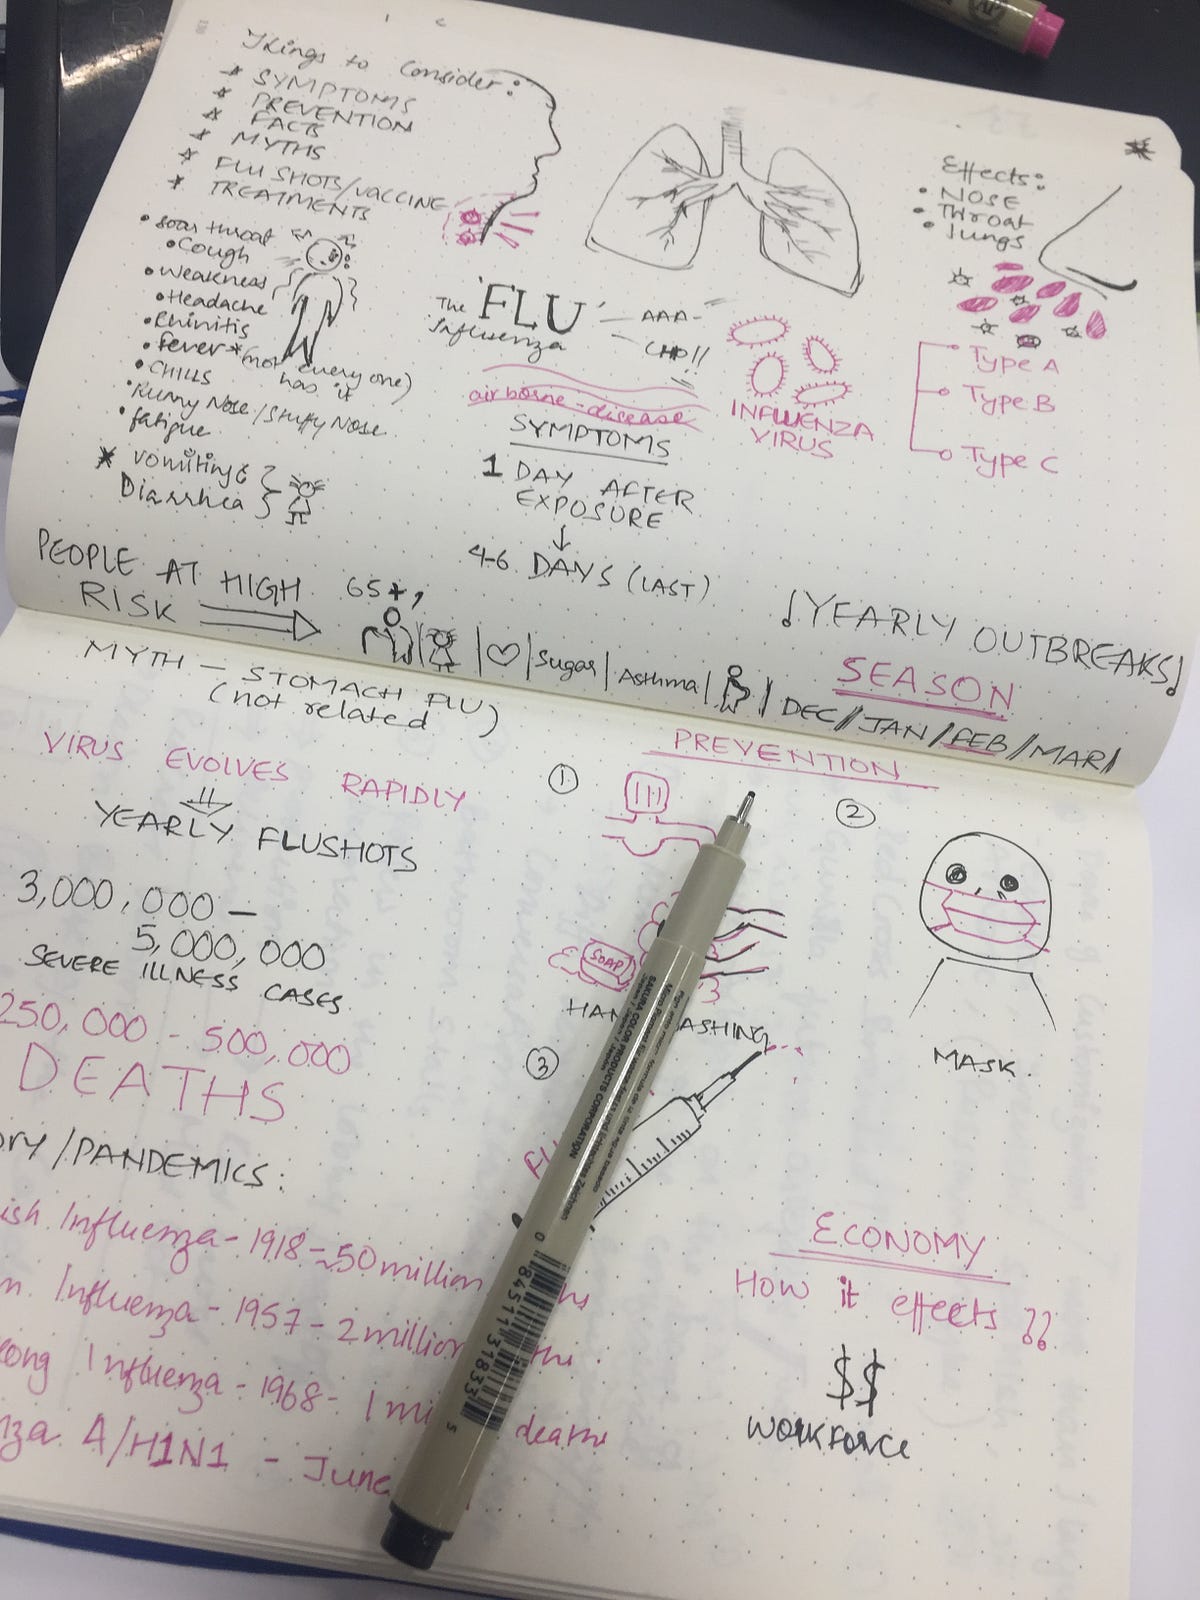 Things to Consider:
* SYMPTOMS
* PREVENTION
* FACTS
* MYTHS
* FLU SHOTS/VACCINE
* TREATMENTS
• soar throat
• Cough
• Weakness
• Headache
• Rhinitis
• fever * (not every one)
has it
• CHILLS
• Runny Nose/Stuffy Nose
• fatigue
* vomiting &
Diarrhea
The 'FLU'
Influenza
AAA-
CHO!!
air borne-disease
SYMPTOMS
1 DAY AFTER
EXPOSURE
4-6 DAYS (LAST)
INFLUENZA
VIRUS
Effects:
• NOSE
• Throat
• lungs
Type A
Type B
Type C
PEOPLE AT HIGH
RISK
65+,
Sugar
Asthma
!YEARLY OUTBREAKS!
SEASON
DEC/JAN/FEB/MAR/
MYTH - STOMACH FLU
(not related)
VIRUS EVOLVES RAPIDLY
YEARLY FLUSHOTS
3,000,000 -
5,000,000
SEVERE ILLNESS CASES
250,000 - 500,000
DEATHS
ORY/PANDEMICS:
ish Influenza - 1918 - ~50 million hs
n Influenza - 1957 - 2 million ths.
ong Influenza - 1968 - 1 mi deaths
nza A/H1N1 - June
PREVENTION
1
SOAP
HAN ASHING
2
MASK.
3
FL
ECONOMY
How it effects ??
$$
WORKFORCE
SAKURA COLOR PRODUCTS CORPORATION
0 84511 31833 5